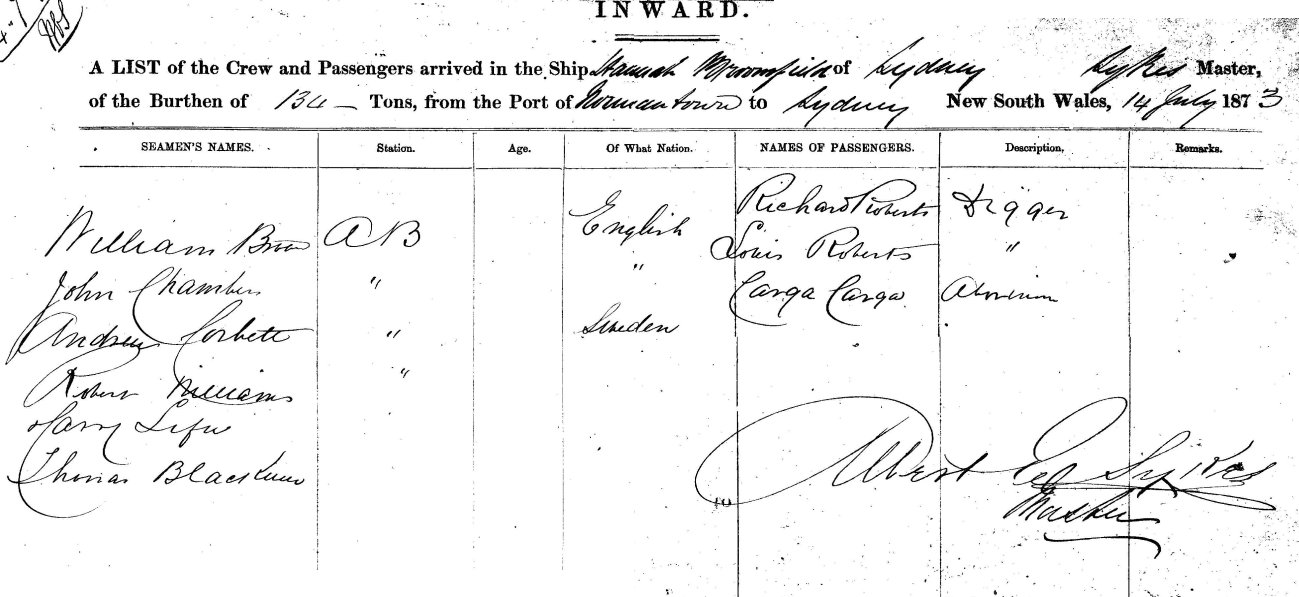 INWARD.
A LIST of the Crew and Passengers arrived in the Ship Hannah Broomfield of Sydney Sykes Master,
of the Burthen of 134 Tons, from the Port of Normantown to Sydney New South Wales, 14 July 1873
SEAMEN'S NAMES. Station. Age. Of What Nation. NAMES OF PASSENGERS. Description, Remarks.
Richard Roberts Digger
William Brown AB English Louis Roberts "
John Chambers " " Carga Carga
Andrew Corbett " Sweden
Robert Williams "
Harry Lifu
Thomas
Albert Sykes
Master